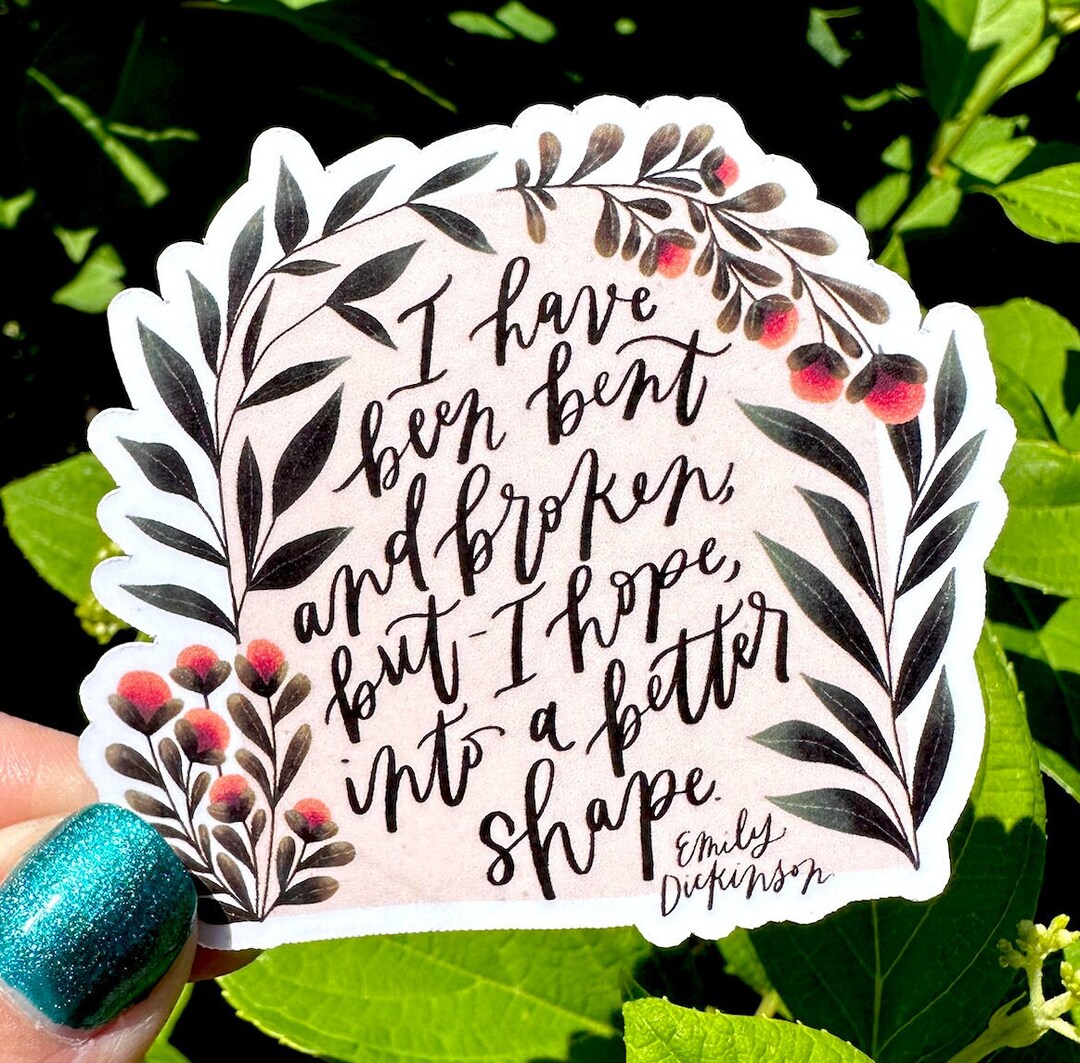 I have
been bent
and broken,
but - I hope,
into a better
shape.
Emily
Dickinson